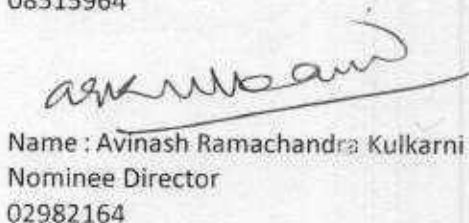 08515964
Name : Avinash Ramachandra Kulkarni
Nominee Director
02982164